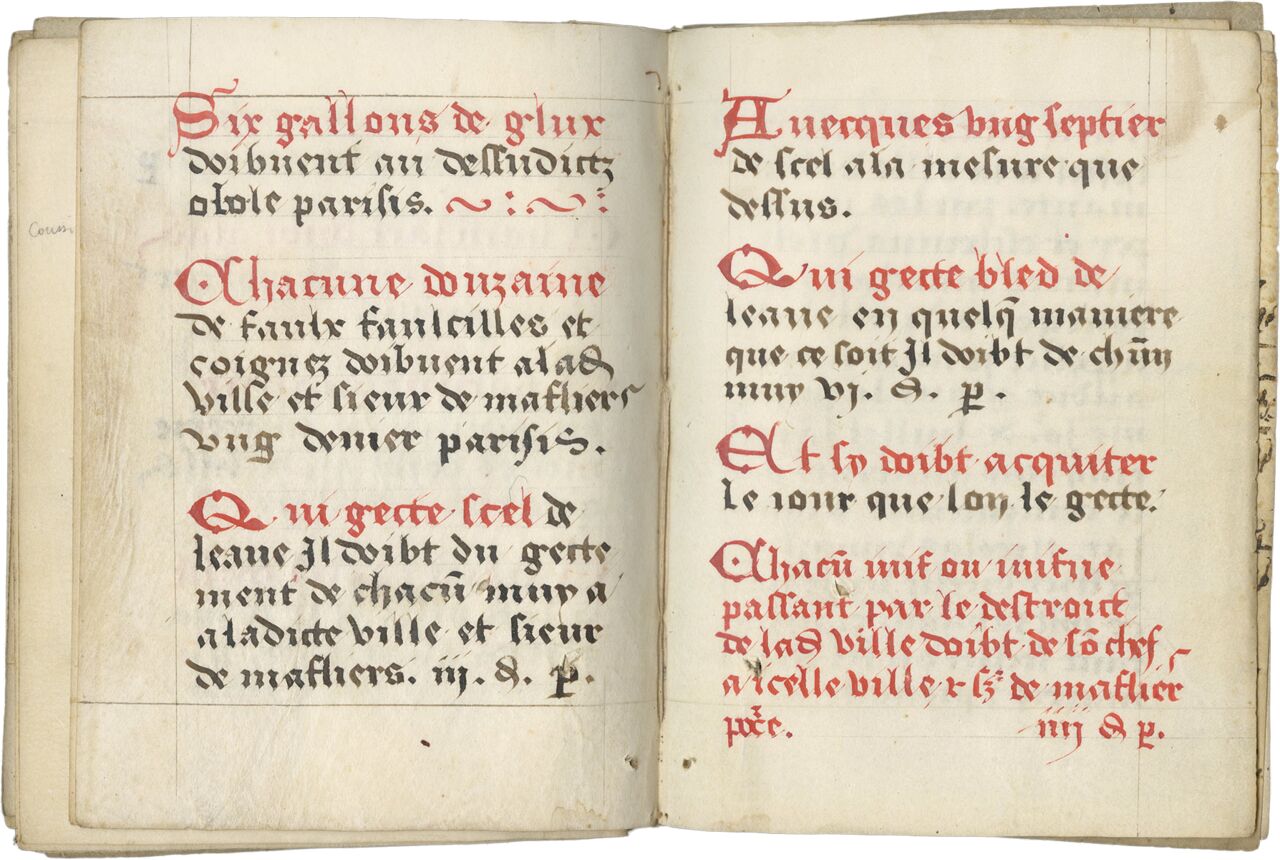 Couss
Six gallons de glux
doibuent au dessudictz
obole parisis.
Chacune douzaine
de faulx faulcilles et
coignez doibuent a lad
ville et sieur de mafliers
vng denier parisis.
Qui gecte scel de
leaue Il doibt du gecte
ment de chacū muy a
a ladicte ville et sieur
de mafliers. iij. d. p.
Auecques vng septier
de scel a la mesure que
dessus.
Qui gecte bled de
leaue en quelq̄ maniere
que ce soit Il doibt de chūn
muy vj. d. p.
Et sy doibt acquiter
le iour que lon le gecte.
Chacū iuif ou iuifue
passant par le destroict
de lad ville doibt de sō chef
a icelle ville r sr de mafliers
poce. iiij d p.